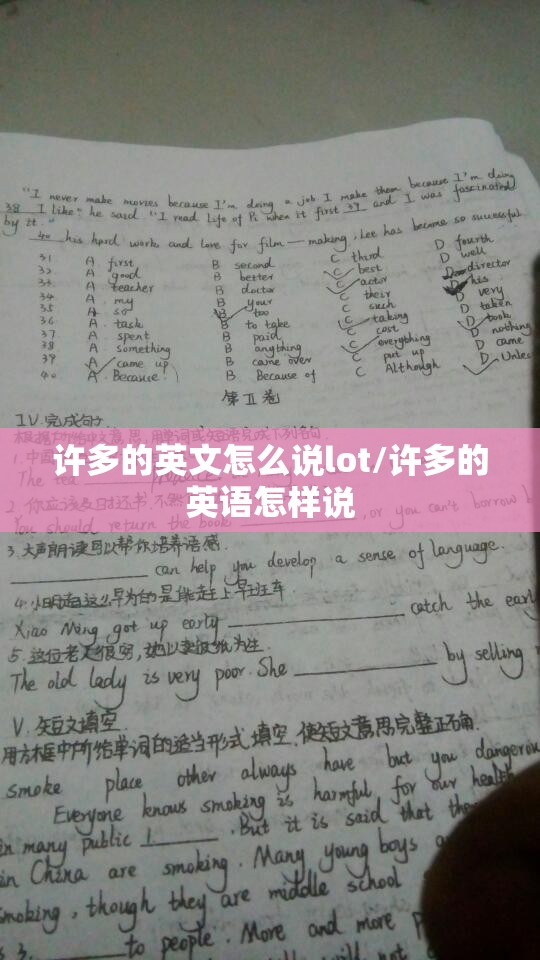 "I never make movies because I'm doing a job I make them because I'm doing
38 I like" he said "I read Life of Pi when it first 39 and I was fascinated
by it."
40 his hard work and love for film — making, Lee has become so successful.
31 A. first B second C third D fourth
32 A. good B better C best D well
33 A. teacher B doctor C actor D director
34 A. my B your C their D his
35 A. so B too C such D very
36 A. task B to take C taking D taken
37 A. spent B paid C cost D took
38 A. something B anything C everything D nothing
39 A. came up B came over C put up D came
40 A. Because B Because of C Although D Unless
第Ⅱ卷
IV. 完成句子
根据所给中文意思,用单词或短语完成下列各句
1. 中国
The tea
许多的英文怎么说lot/许多的
英语怎样说
2. 你应该按时还书,不然
You should return the book , or you can't borrow
3. 大声朗读可以帮你培养语感.
can help you develop a sense of language.
4. 小明起这么早为的是能赶上早班车
Xiao Ming got up early catch the early
5. 这位老太很穷,她以卖报纸为生.
The old lady is very poor. She by selling
V. 短文填空
用方框中所给单词的适当形式填空,使短文意思完整正确.
smoke place other always have but you dangerou
Everyone knows smoking is harmful for our health
in many public 1. . But it is said that the
in China are smoking. Many young boys
smoking, though they are middle school
3. to people. More and more p